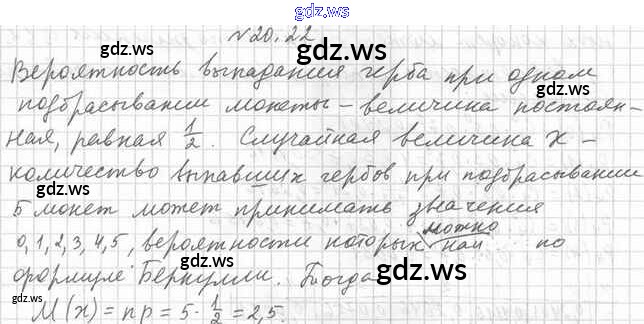 gdz.ws
№20.22
gdz.ws
gdz.ws
Вероятность выпадания герба при одном
подбрасывании монеты – величина постоян-
ная, равная 1/2. Случайная величина X –
количество выпавших гербов при подбрасывании
gdz.ws
gdz.ws
5 монет может принимать значения
можно
0, 1, 2, 3, 4, 5, вероятности которых най по
gdz.ws
формуле Бернулли. Тогда
gdz.ws
M(x) = np = 5 · 1/2 = 2,5.
gdz.ws